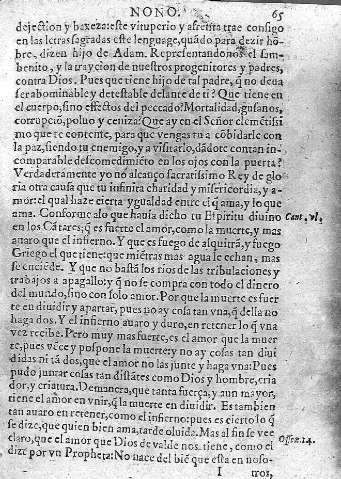 NONO. 65
dejection y baxeza: este vituperio y afrenta trae consigo
en las letras sagradas este lenguage, quãdo para dezir hõ-
bre, dizen hijo de Adam. Representandonos el sam-
benito, y la trayciõn de nuestros progenitores y padres,
contra Dios. Pues que tiene hijo de tal padre, q̃ no deua
ser abominable y detestable delante de ti? Que tiene en
el cuerpo, sino effectos del peccado? Mortalidad, gusanos,
corrupciõ, poluo y ceniza? Que ay en el Señor clemẽtissi
mo que te contente, para que vengas tu a cõbidarle con
la paz, siendo tu enemigo, y a visitarlo, dãdote con tan in-
comparable descomedimiẽto en los ojos con la puerta?
Verdaderamente yo no alcanço sacratissimo Rey de glo
ria otra causa que tu infinita charidad y misericordia, y a-
mor: el qual haze cierta ygualdad entre el q̃ ama, y lo que
ama. Conforme a lo que hauia dicho tu Espiritu diuino
Cant. vl,
en los Cãtares; q̃ es fuerte el amor, como la muerte, y mas
auaro que el infierno. Y que es fuego de alquitrã, y fuego
Griego el que tiene: que miẽtras mas agua le echan, mas
se enciẽde. Y que no bastã los rios de las tribulaciones y
trabajos a apagallo: y q̃ no se compra con todo el dinero
del mundo, sino con solo amor. Porque la muerte es fuer
te en diuidir y apartar, pues no ay cosa tan vna, q̃ della no
haga dos. Y el infierno auaro y duro, en retener lo q̃ vna
vez recibe. Pero muy mas fuerte, es el amor que la muer
te, pues vẽce y pospone la muerte: y no ay cosas tan diui
didas ni tã dos, que el amor no las junte y haga vna: Pues
pudo juntar cosas tan distãtes como Dios y hombre, cria
dor, y criatura. De manera, que tanta fuerça, y aun mayor,
tiene el amor en vnir, q̃ la muerte en diuidir. Es tambien
tan auaro en retener, como el infierno: pues es cierto lo q̃
se dize, que quien bien ama, tarde oluida. Mas al fin se vee
claro, que el amor que Dios de valde nos tiene, como el
Osee. 14.
dize por vn Propheta: No nace del biẽ que esta en noso-
I tros,